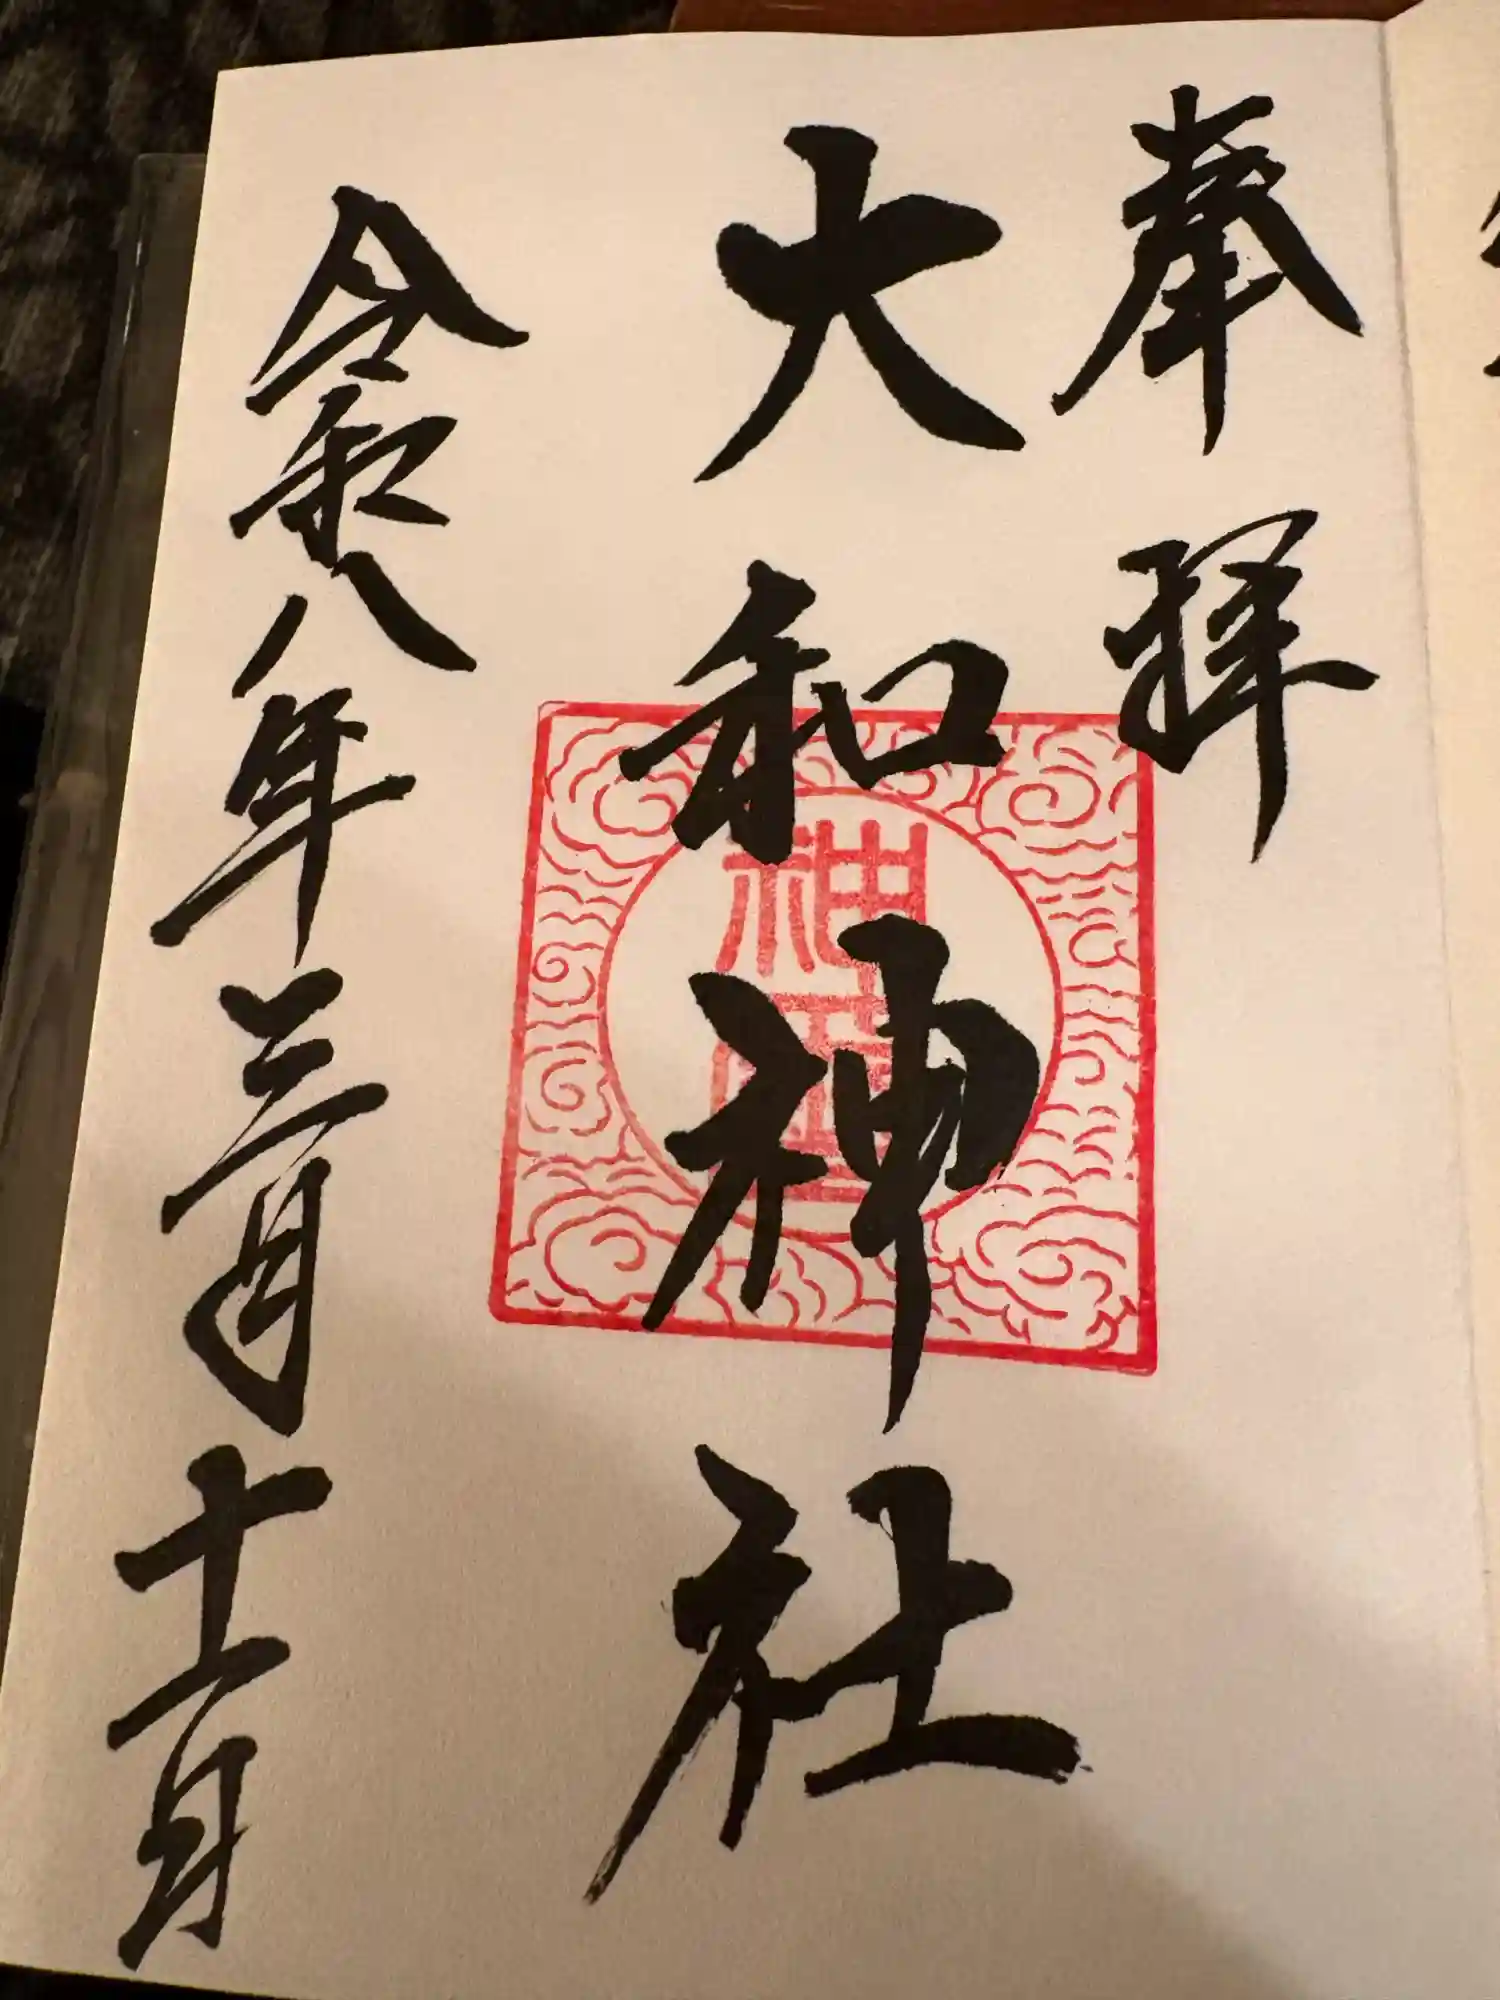 奉拝
大和神社
令和八年三月十一日
神